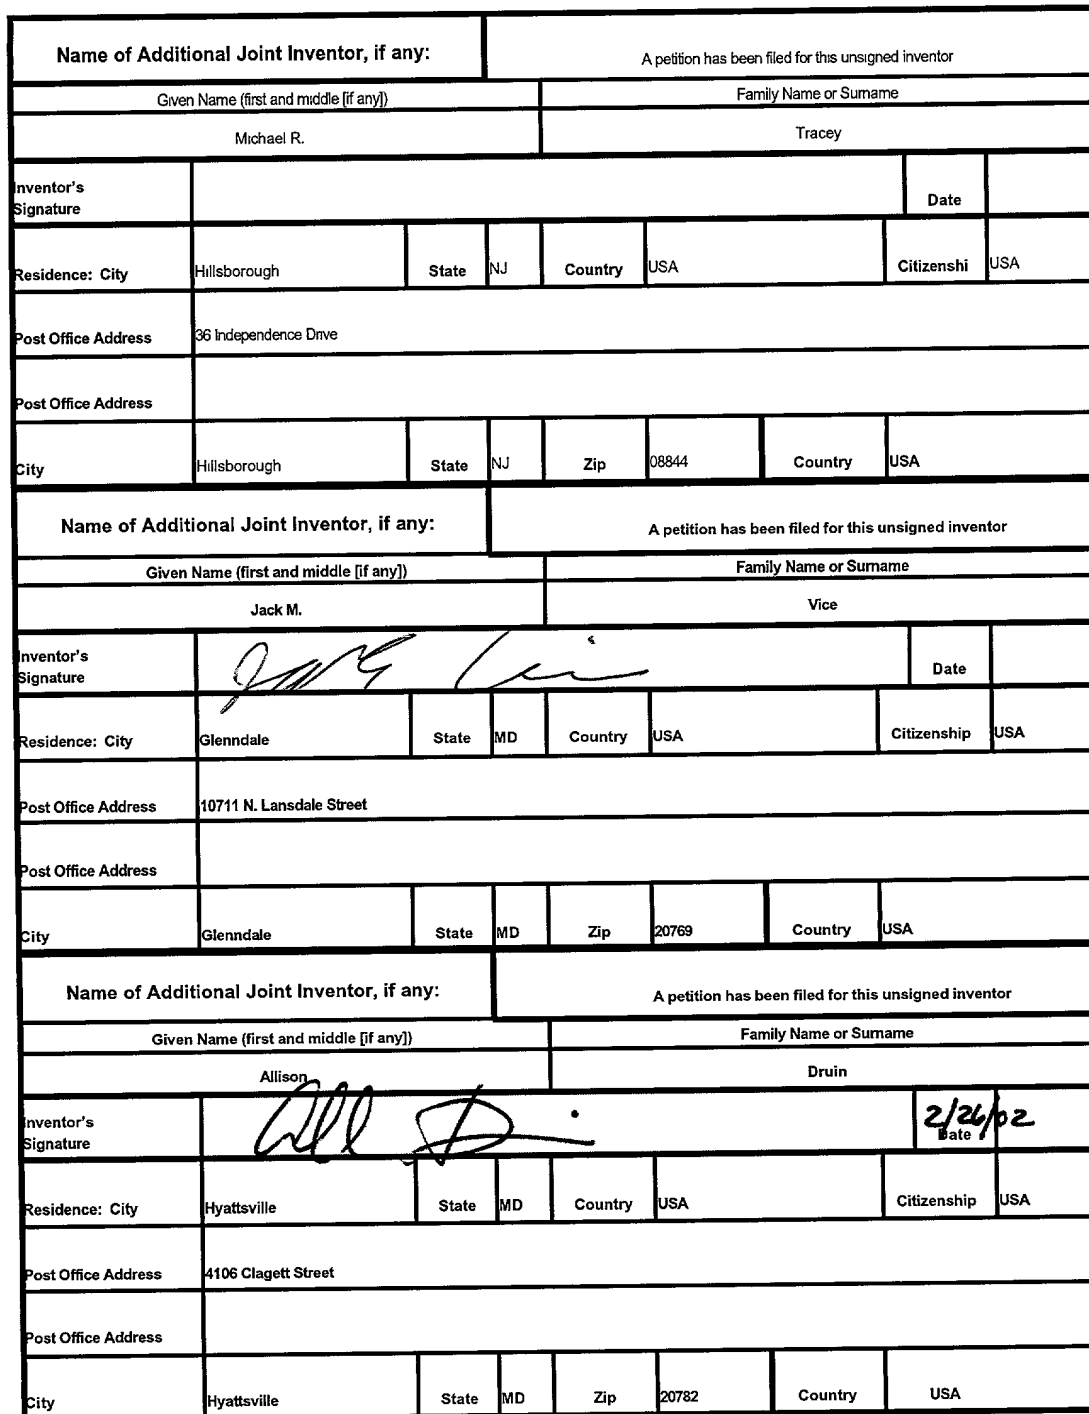 Name of Additional Joint Inventor, if any: A petition has been filed for this unsigned inventor
Given Name (first and middle [if any]) Family Name or Surname
Michael R. Tracey
Inventor's
Signature Date
Residence: City Hillsborough State NJ Country USA Citizenshi USA
Post Office Address 36 Independence Drive
Post Office Address
City Hillsborough State NJ Zip 08844 Country USA
Name of Additional Joint Inventor, if any: A petition has been filed for this unsigned inventor
Given Name (first and middle [if any]) Family Name or Surname
Jack M. Vice
Inventor's
Signature Date
Residence: City Glenndale State MD Country USA Citizenship USA
Post Office Address 10711 N. Lansdale Street
Post Office Address
City Glenndale State MD Zip 20769 Country USA
Name of Additional Joint Inventor, if any: A petition has been filed for this unsigned inventor
Given Name (first and middle [if any]) Family Name or Surname
Allison Druin
Inventor's
Signature Date 2/26/02
Residence: City Hyattsville State MD Country USA Citizenship USA
Post Office Address 4106 Clagett Street
Post Office Address
City Hyattsville State MD Zip 20782 Country USA